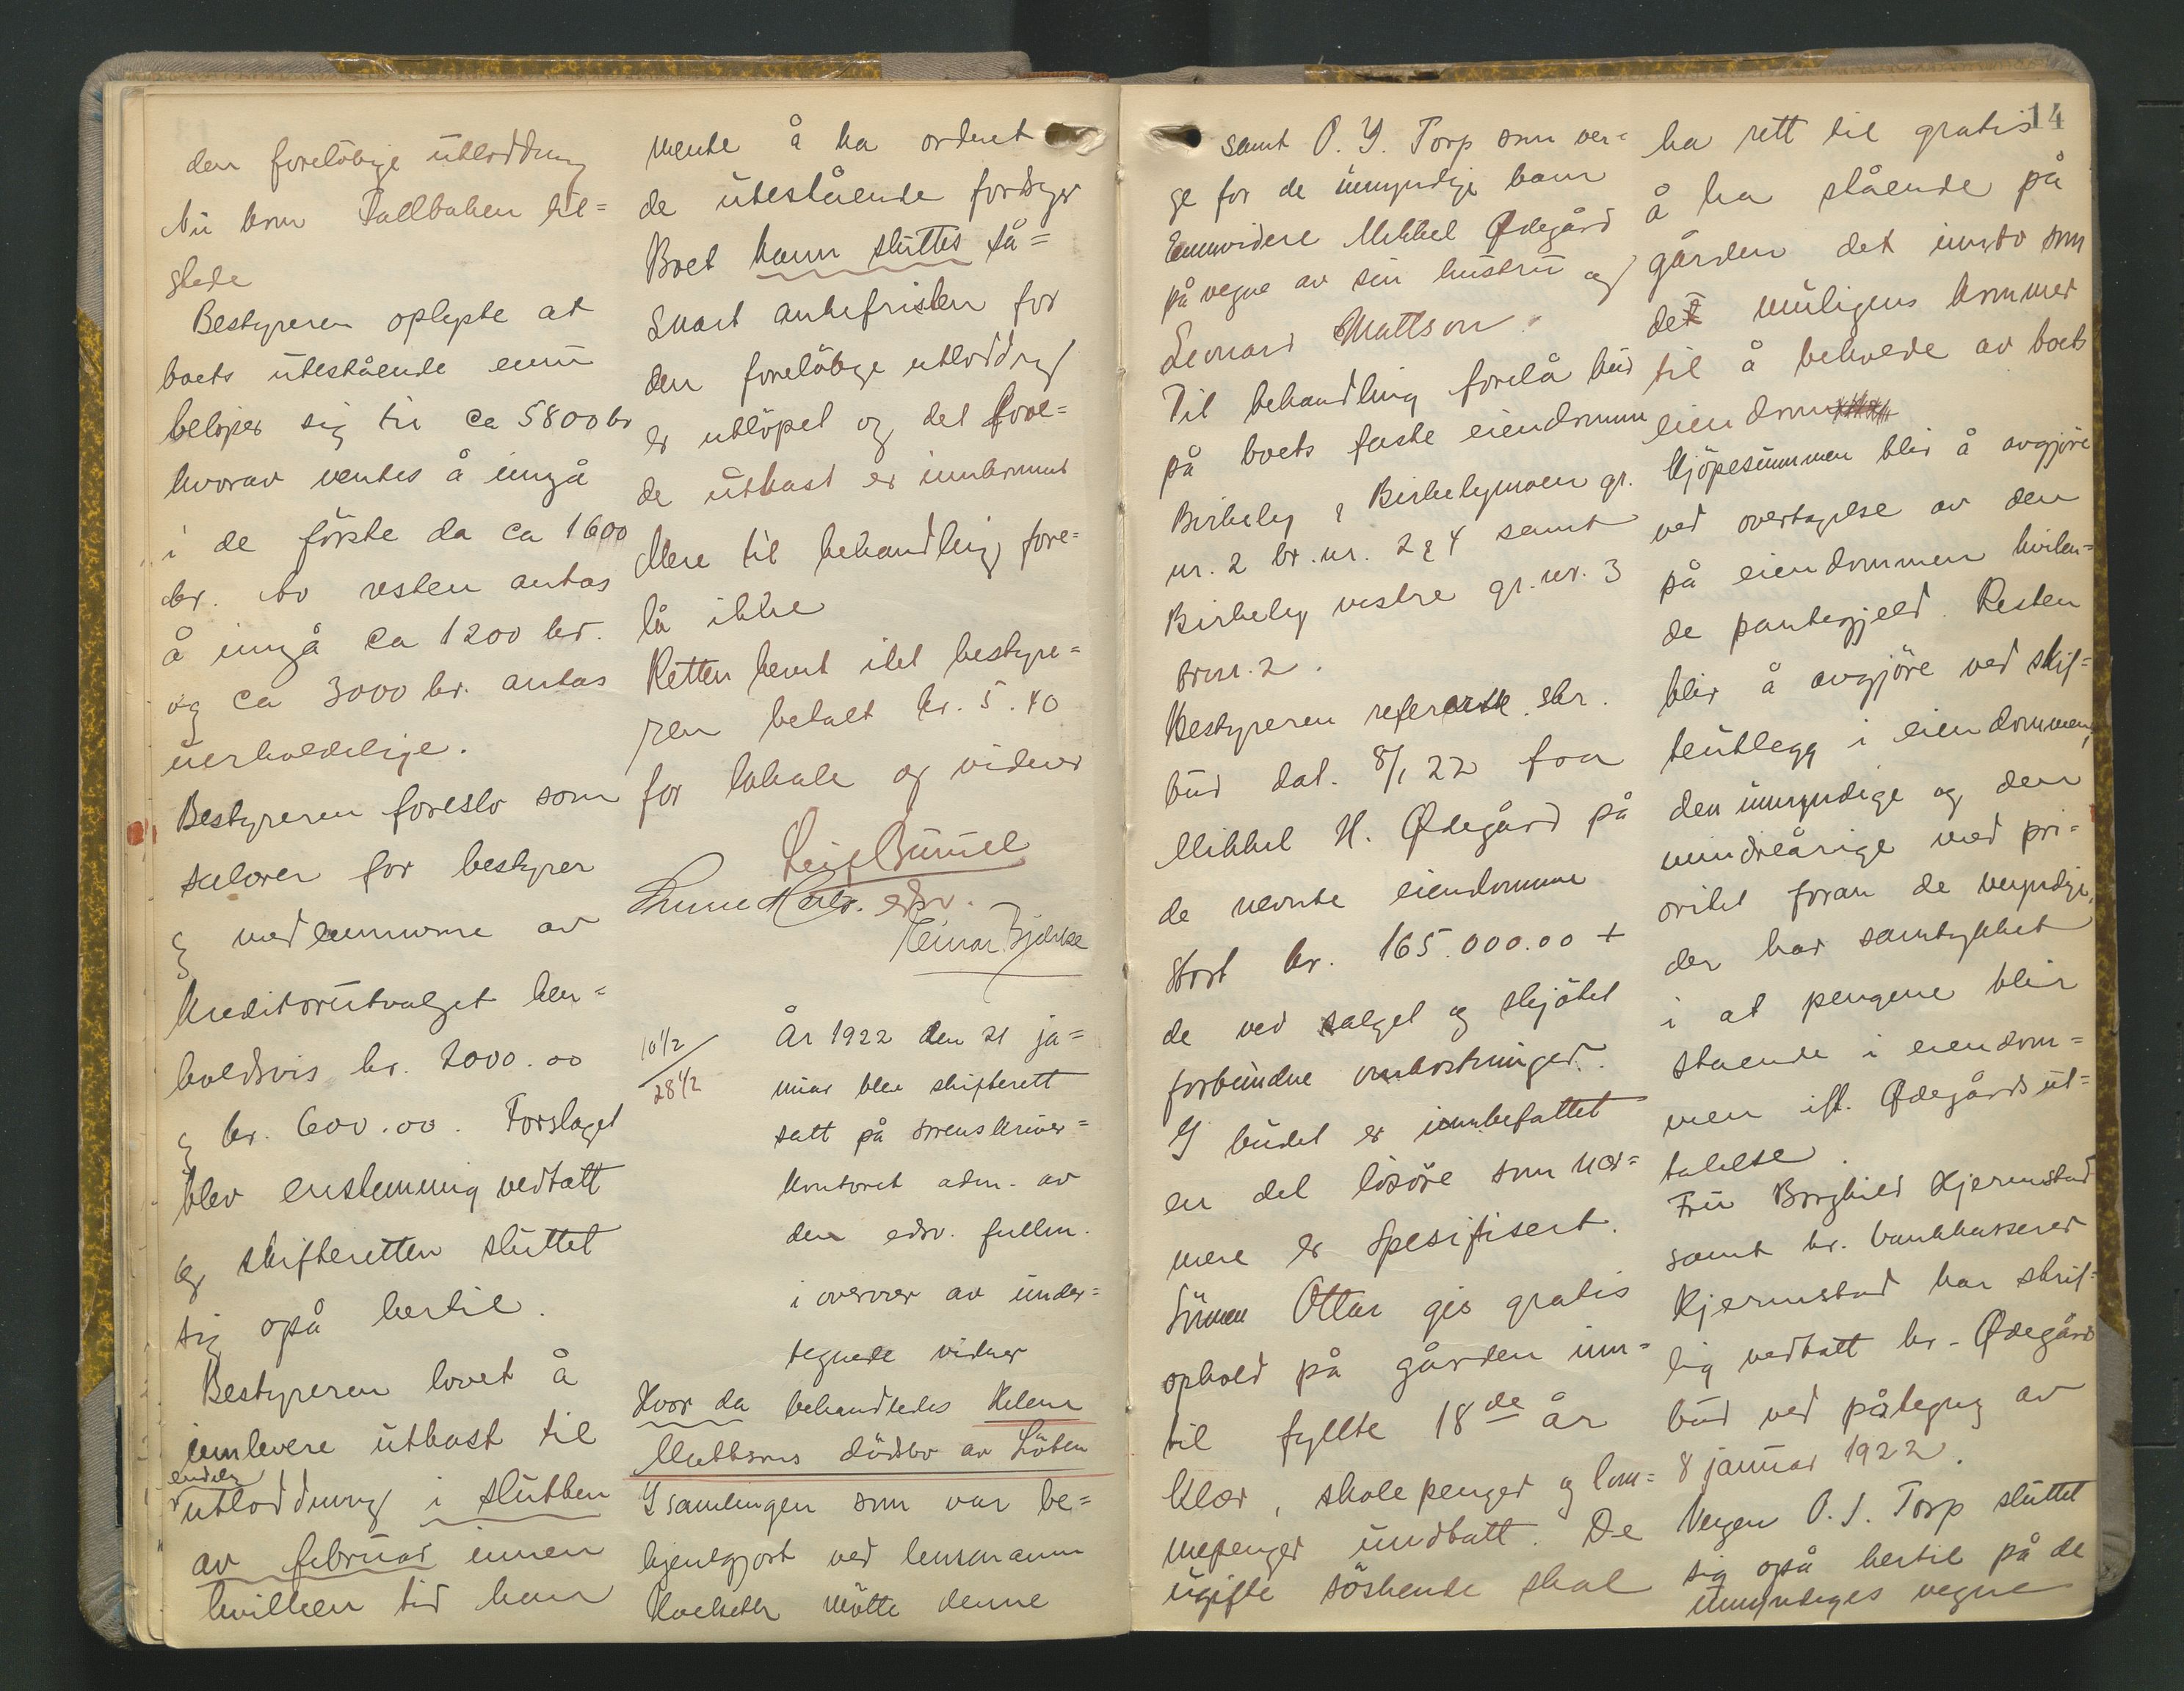 den foreløbige utlodding
Nu kom Fallbaken til=
stede
Bestyreren oplyste at
boets utestående ennu
beløper sig til ca 5800 kr
hvorav ventes å inngå
i de første da ca 1600
kr. Av resten antas
å inngå ca 1200 kr.
og ca 3000 kr. antas
uerholdelige.
Bestyreren foreslo som
salærer for bestyrer
& medlemmerne av
kreditorutvalget hen=
holdsvis kr. 2000.00
& kr. 600.00. Forslaget
blev enstemmig vedtatt
og skifteretten sluttet
sig også hertil.
Bestyreren lovet å
innlevere utkast til
endelig
utlodding i slutten
av februar innen
hvilken tid han
mente å ha ordnet
de utestående fordringer
Boet kann sluttes så=
snart ankefristen for
den foreløbige utlodding
er utløpet og det fore=
de utkast er innkommet
Mere til behandling fore=
lå ikke
Retten hevet idet bestyre=
ren betalt kr. 5.40
for lokale og vidner
Leif Bunæl
edsv.
Einar Bjerke
10 1/2
28 1/2
År 1922 den 21 ja=
nuar blev skifterett
satt på sorenskriver=
kontoret adm. av
den edsv. fullm.
i overvær av under=
tegnede vidner
Hvor da behandledes Helene
Mattsons dødsbo av Løten
I samlingen som var be=
kjentgjort ved lensmann
møtte denne
14
samt O. J. Torp som ver=
ge for de umyndige barn
Ennvidere Mikkel Ødegård
på vegne av sin hustru og
Leonard Mattson.
Til behandling forelå bud
på boets faste eiendomme
Birkeby & Birkebymoen gr.
nr. 2 br.nr. 2 & 4 samt
Birkeby vestre gr.nr. 3
br.nr. 2.
Bestyreren refererte skr.
bud dat. 8/1 22 fra
Mikkel H. Ødegård på
de nevnte eiendomme
stort kr. 165.000.00 +
de ved salget og skjøtet
forbundne omkostninger.
I budet er innbefattet
en del løsøre som nær=
mere er spesifisert.
Sønnen Ottar gis gratis
ophold på gården inn=
til fyllte 18de år
klær, skolepenger og lom=
mepenger undtatt. De
ugifte søskende skal
ha rett til gratis
å ha stående på
gården det innbo som
det muligens kommer
til å beholde av boets
eiendom
Kjøpesummen blir å avgjøre
ved overtagelse av den
på eiendommen hvilen=
de pantegjeld. Resten
blir å avgjøre ved skif=
teutlegg i eiendommen,
den umyndige og den
mindreårige med pri=
oritet foran de myndige,
der har samtykket
i at pengene blir
stående i eiendom=
men ifl. Ødegårds ut=
talelse.
Fru Borghild Kjernstad
samt hr. bankkasserer
Kjernstad har skrift=
lig vedtatt hr. Ødegårds
bud ved påtegng av
8 januar 1922.
Vergen O. J. Torp sluttet
sig også hertil på de
umyndiges vegne